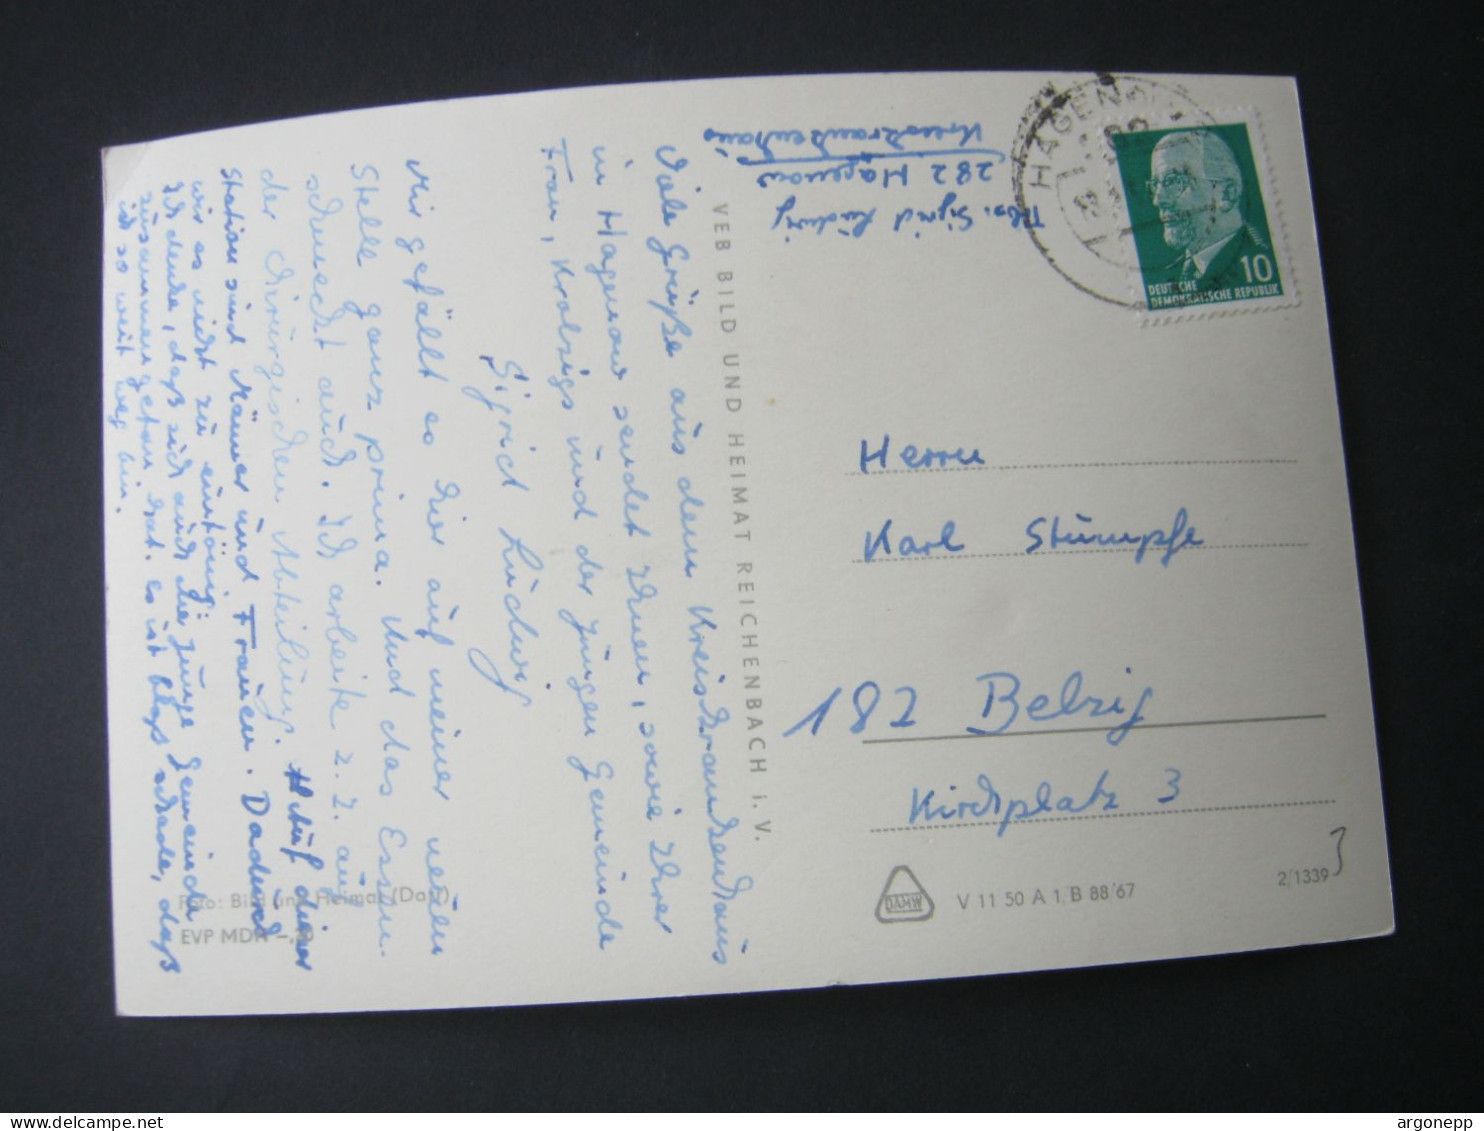 Abs. Sigrid Ludwig
282 Hagenow
Kreiskrankenhaus
Viele Grüße aus dem Kreiskrankenhaus
in Hagenow sendet Ihnen, sowie Ihrer
Frau, Krolzigs und der jungen Gemeinde
Sigrid Ludwig
Mir gefällt es hier auf meiner neuen
Stelle ganz prima. Und das Essen
schmeckt auch. Ich arbeite z. Z. auf
der chirurgischen Abteilung. Auf einer
Station sind Männer und Frauen. Dadurch
wir es nicht zu eintönig.
Ich denke, daß sich auch die junge Gemeinde
zusammengetan hat. Es ist bloß schade, daß
ich so weit weg bin.
VEB BILD UND HEIMAT REICHENBACH i. V.
HAGENOW
10
DEUTSCHE
DEMOKRATISCHE REPUBLIK
Herrn
Karl Stümpfe
182 Belzig
Kirchplatz 3
Foto: Bild und Heimat (Dart)
EVP MDN -,20
DAMW
V 11 50 A 1, B 88/67
2/1339
argonepp